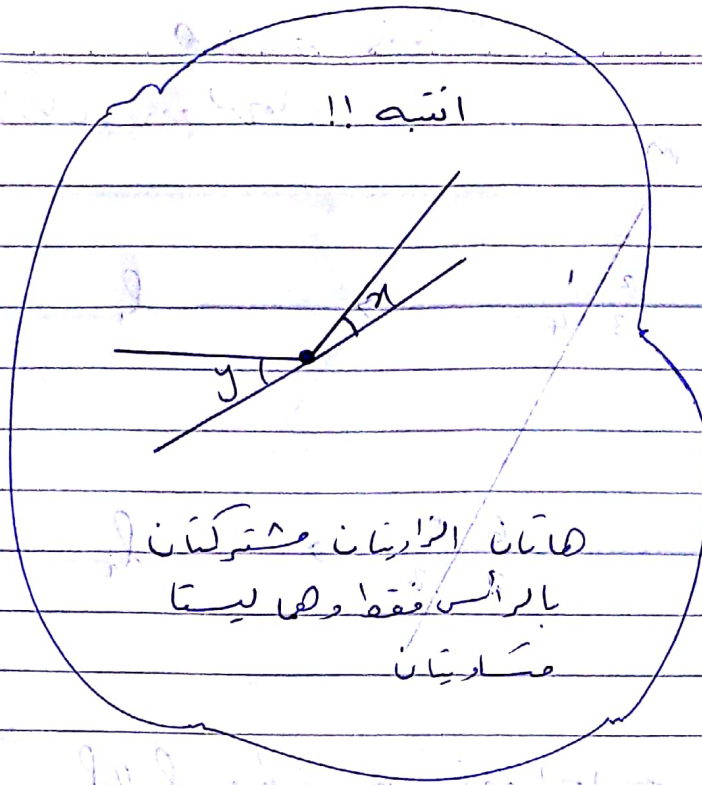 انتبه !!
x
y
هاتان الزاويتان مشتركتان
بالرأس فقط وهما ليستا
متساويتان